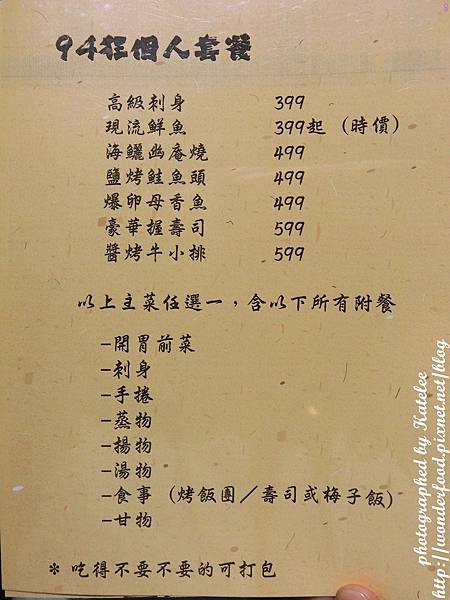 94狂個人套餐
高級刺身 399
現流鮮魚 399起 (時價)
海鱺幽庵燒 499
鹽烤鮭魚頭 499
爆卵母香魚 499
豪華握壽司 599
醬烤牛小排 599
以上主菜任選一，含以下所有附餐
-開胃前菜
-刺身
-手捲
-蒸物
-揚物
-湯物
-食事 (烤飯團／壽司或梅子飯)
-甘物
* 吃得不要不要的可打包
photographed by Katelee
http://wonderfood.pixnet.net/blog